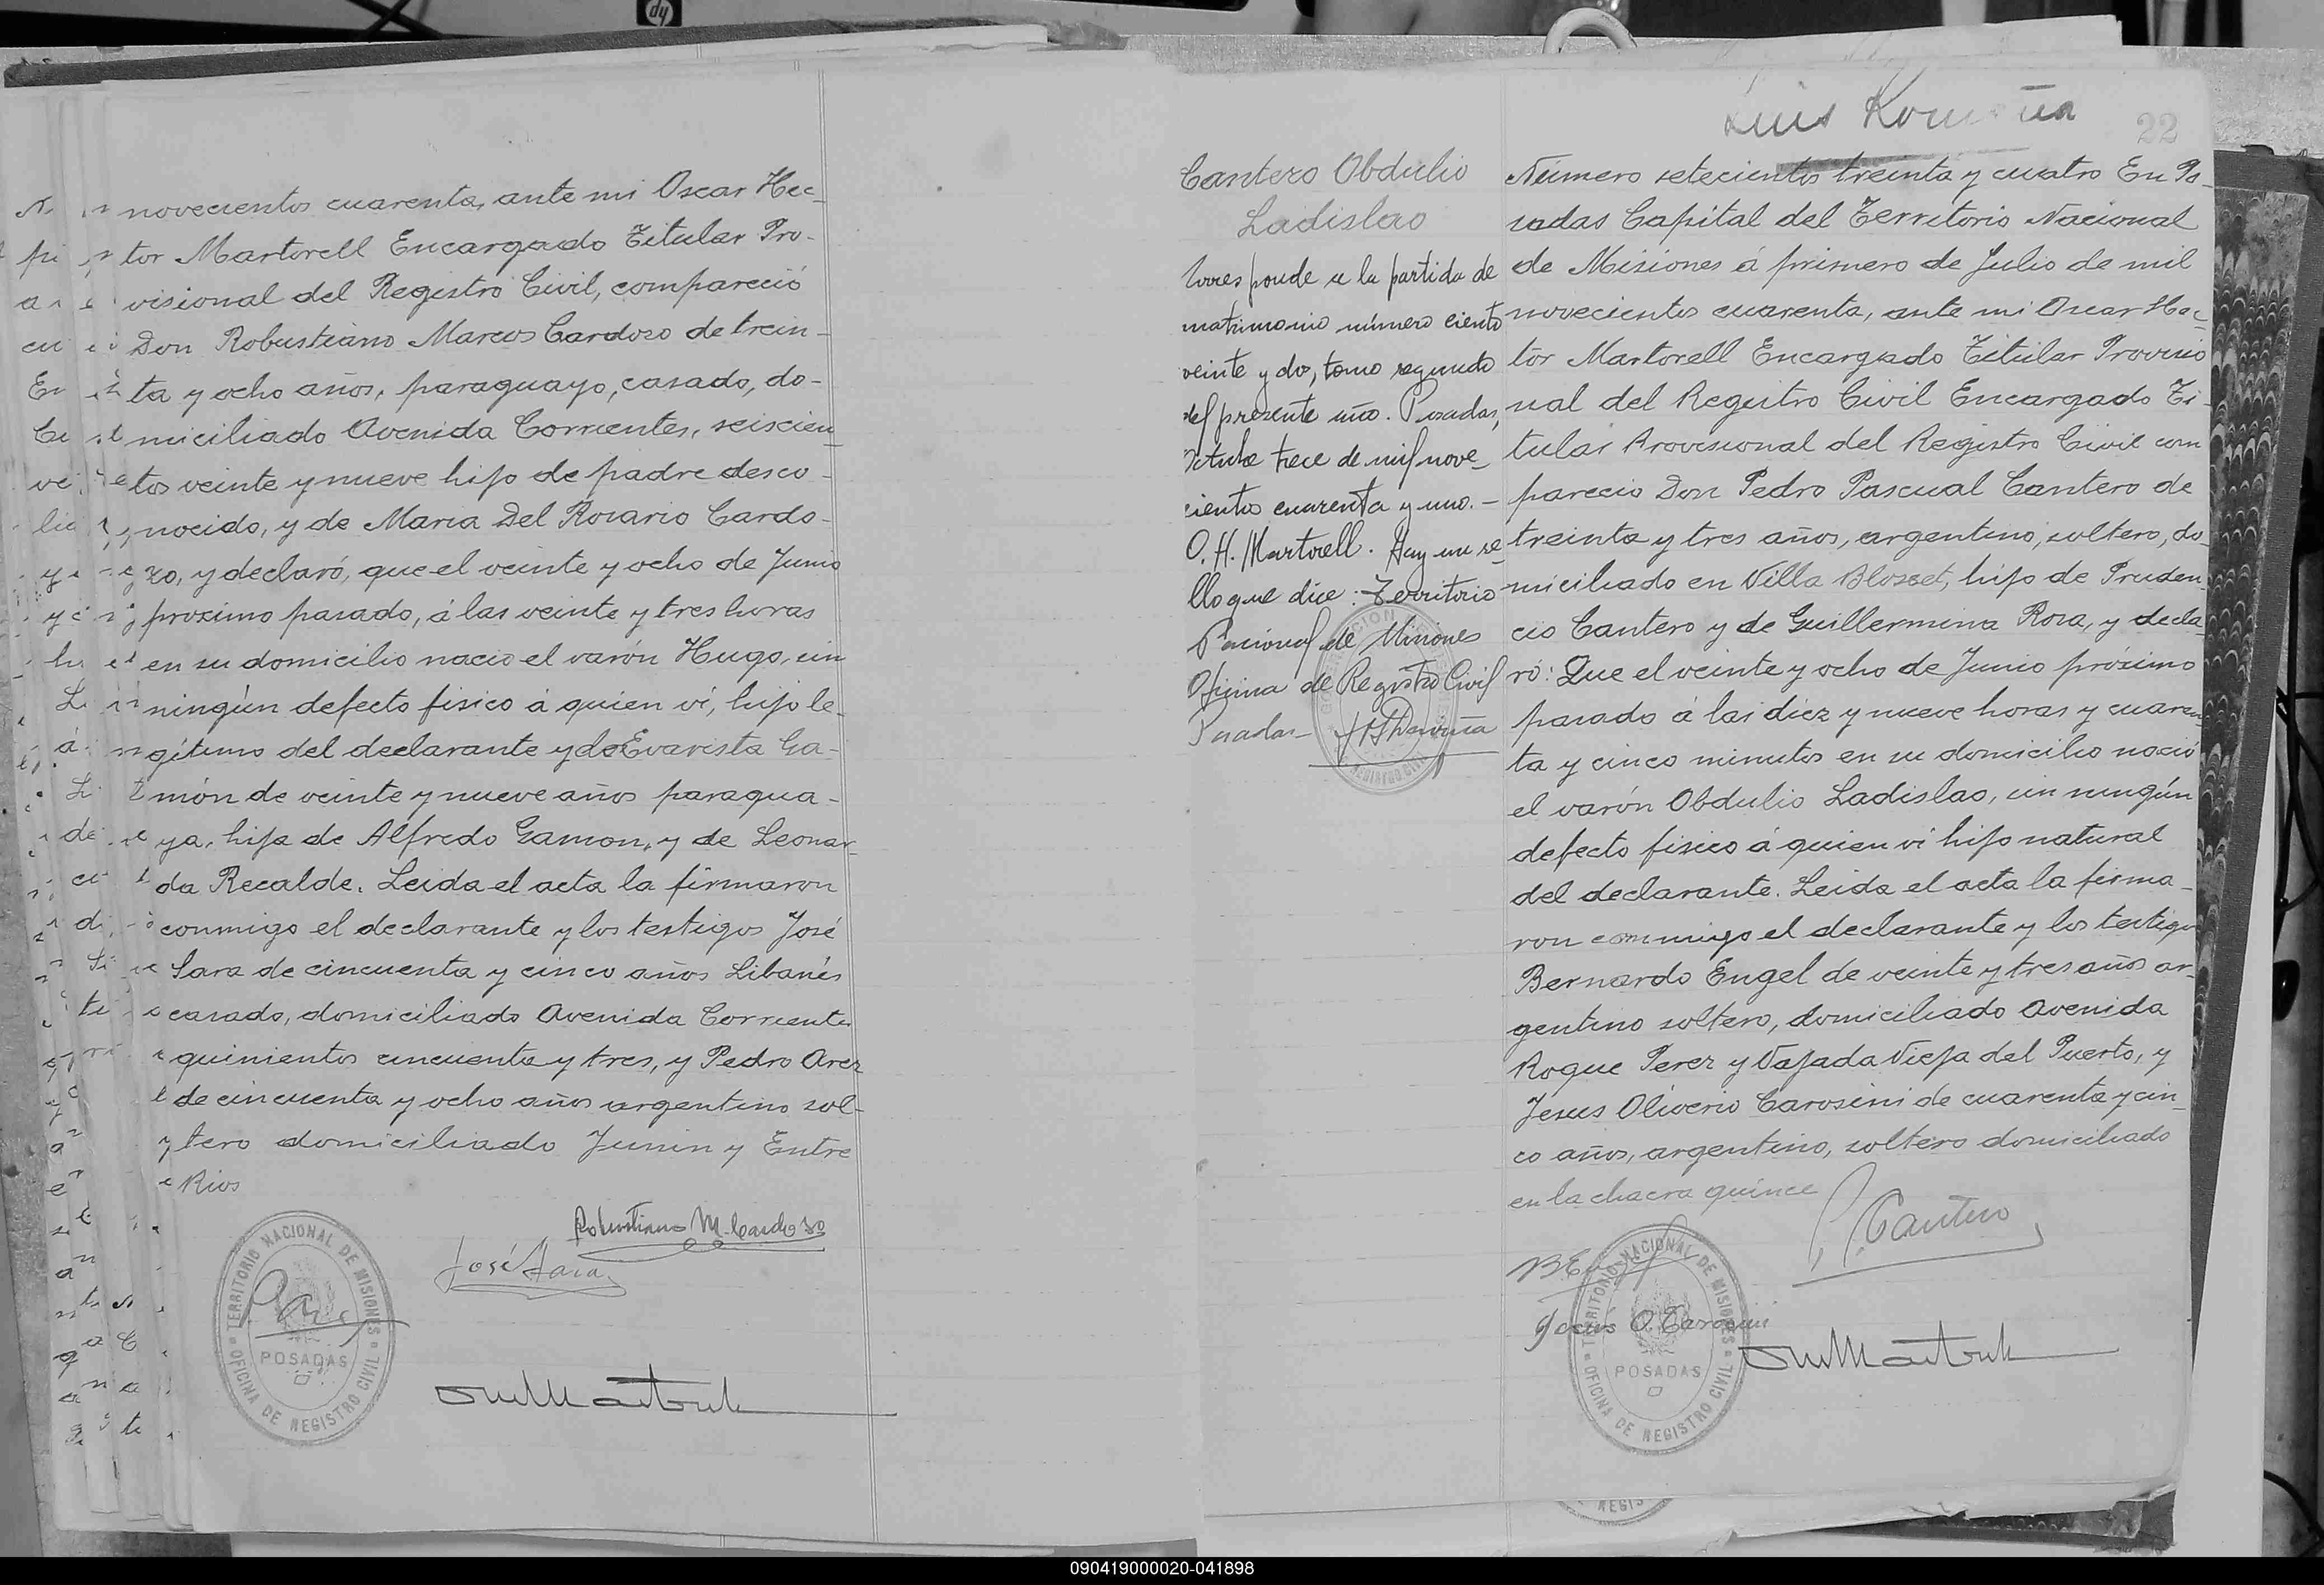 novecientos cuarenta, ante mi Oscar Hec-
tor Martorell Encargado Titular Pro-
visional del Registro Civil, compareció
Don Robustiano Marcos Cardozo de trein-
ta y ocho años, paraguayo, casado, do-
miciliado Avenida Corrientes, seiscien-
tos veinte y nueve hijo de padre desco-
nocido, y de Maria Del Rosario Cardo-
zo, y declaró, que el veinte y ocho de Junio
proximo pasado, á las veinte y tres horas
en su domicilio nacio el varón Hugo, sin
ningún defecto fisico á quien ví, hijo le-
gítimo del declarante y de Evarista Ga-
món de veinte y nueve años paragua-
ya, hija de Alfredo Gamon, y de Leonar-
da Recalde. Leida el acta la firmaron
conmigo el declarante y los testigos José
Sara de cincuenta y cinco años Libanés
casado, domiciliado Avenida Corrientes
quinientos cincuenta y tres, y Pedro Arez
de cincuenta y ocho años argentino sol-
tero domiciliado Junin y Entre
Rios
Robustiano M. Cardozo
José Sara
TERRITORIO NACIONAL DE MISIONES
POSADAS
OFICINA DE REGISTRO CIVIL
Luis
22
Cantero Obdulio
Ladislao
Corresponde a la partida de
matrimonio número ciento
veinte y dos, tomo segundo
del presente año. Posadas,
Octubre trece de mil nove-
cientos cuarenta y uno.-
O. H. Martorell. Hay un se-
llo que dice: Territorio
Nacional de Misiones
Oficina de Registro Civil
Posadas-
Número setecientos treinta y cuatro En Po-
sadas Capital del Territorio Nacional
de Misiones á primero de Julio de mil
novecientos cuarenta, ante mi Oscar Hec-
tor Martorell Encargado Titular Provisio
nal del Registro Civil Encargado Ti-
tular Provisional del Registro Civil com
parecio Don Pedro Pascual Cantero de
treinta y tres años, argentino, soltero, do-
miciliado en Villa Blosset, hijo de Pruden-
cio Cantero y de Guillermina Rosa, y decla-
ró: Que el veinte y ocho de Junio próximo
pasado á las diez y nueve horas y cuaren
ta y cinco minutos en su domicilio nació
el varón Obdulio Ladislao, sin ningún
defecto fisico á quien ví hijo natural
del declarante. Leida el acta la firma-
ron conmigo el declarante y los testigos
Bernardo Engel de veinte y tres años ar-
gentino soltero, domiciliado Avenida
Roque Perez y Vajada Vieja del Puerto, y
Jesus Oliverio Carosini de cuarenta y cin-
co años, argentino, soltero domiciliado
en la chacra quince
P. P. Cantero
Jesús O. Carosini
TERRITORIO NACIONAL DE MISIONES
POSADAS
OFICINA DE REGISTRO CIVIL
090419000020-041898